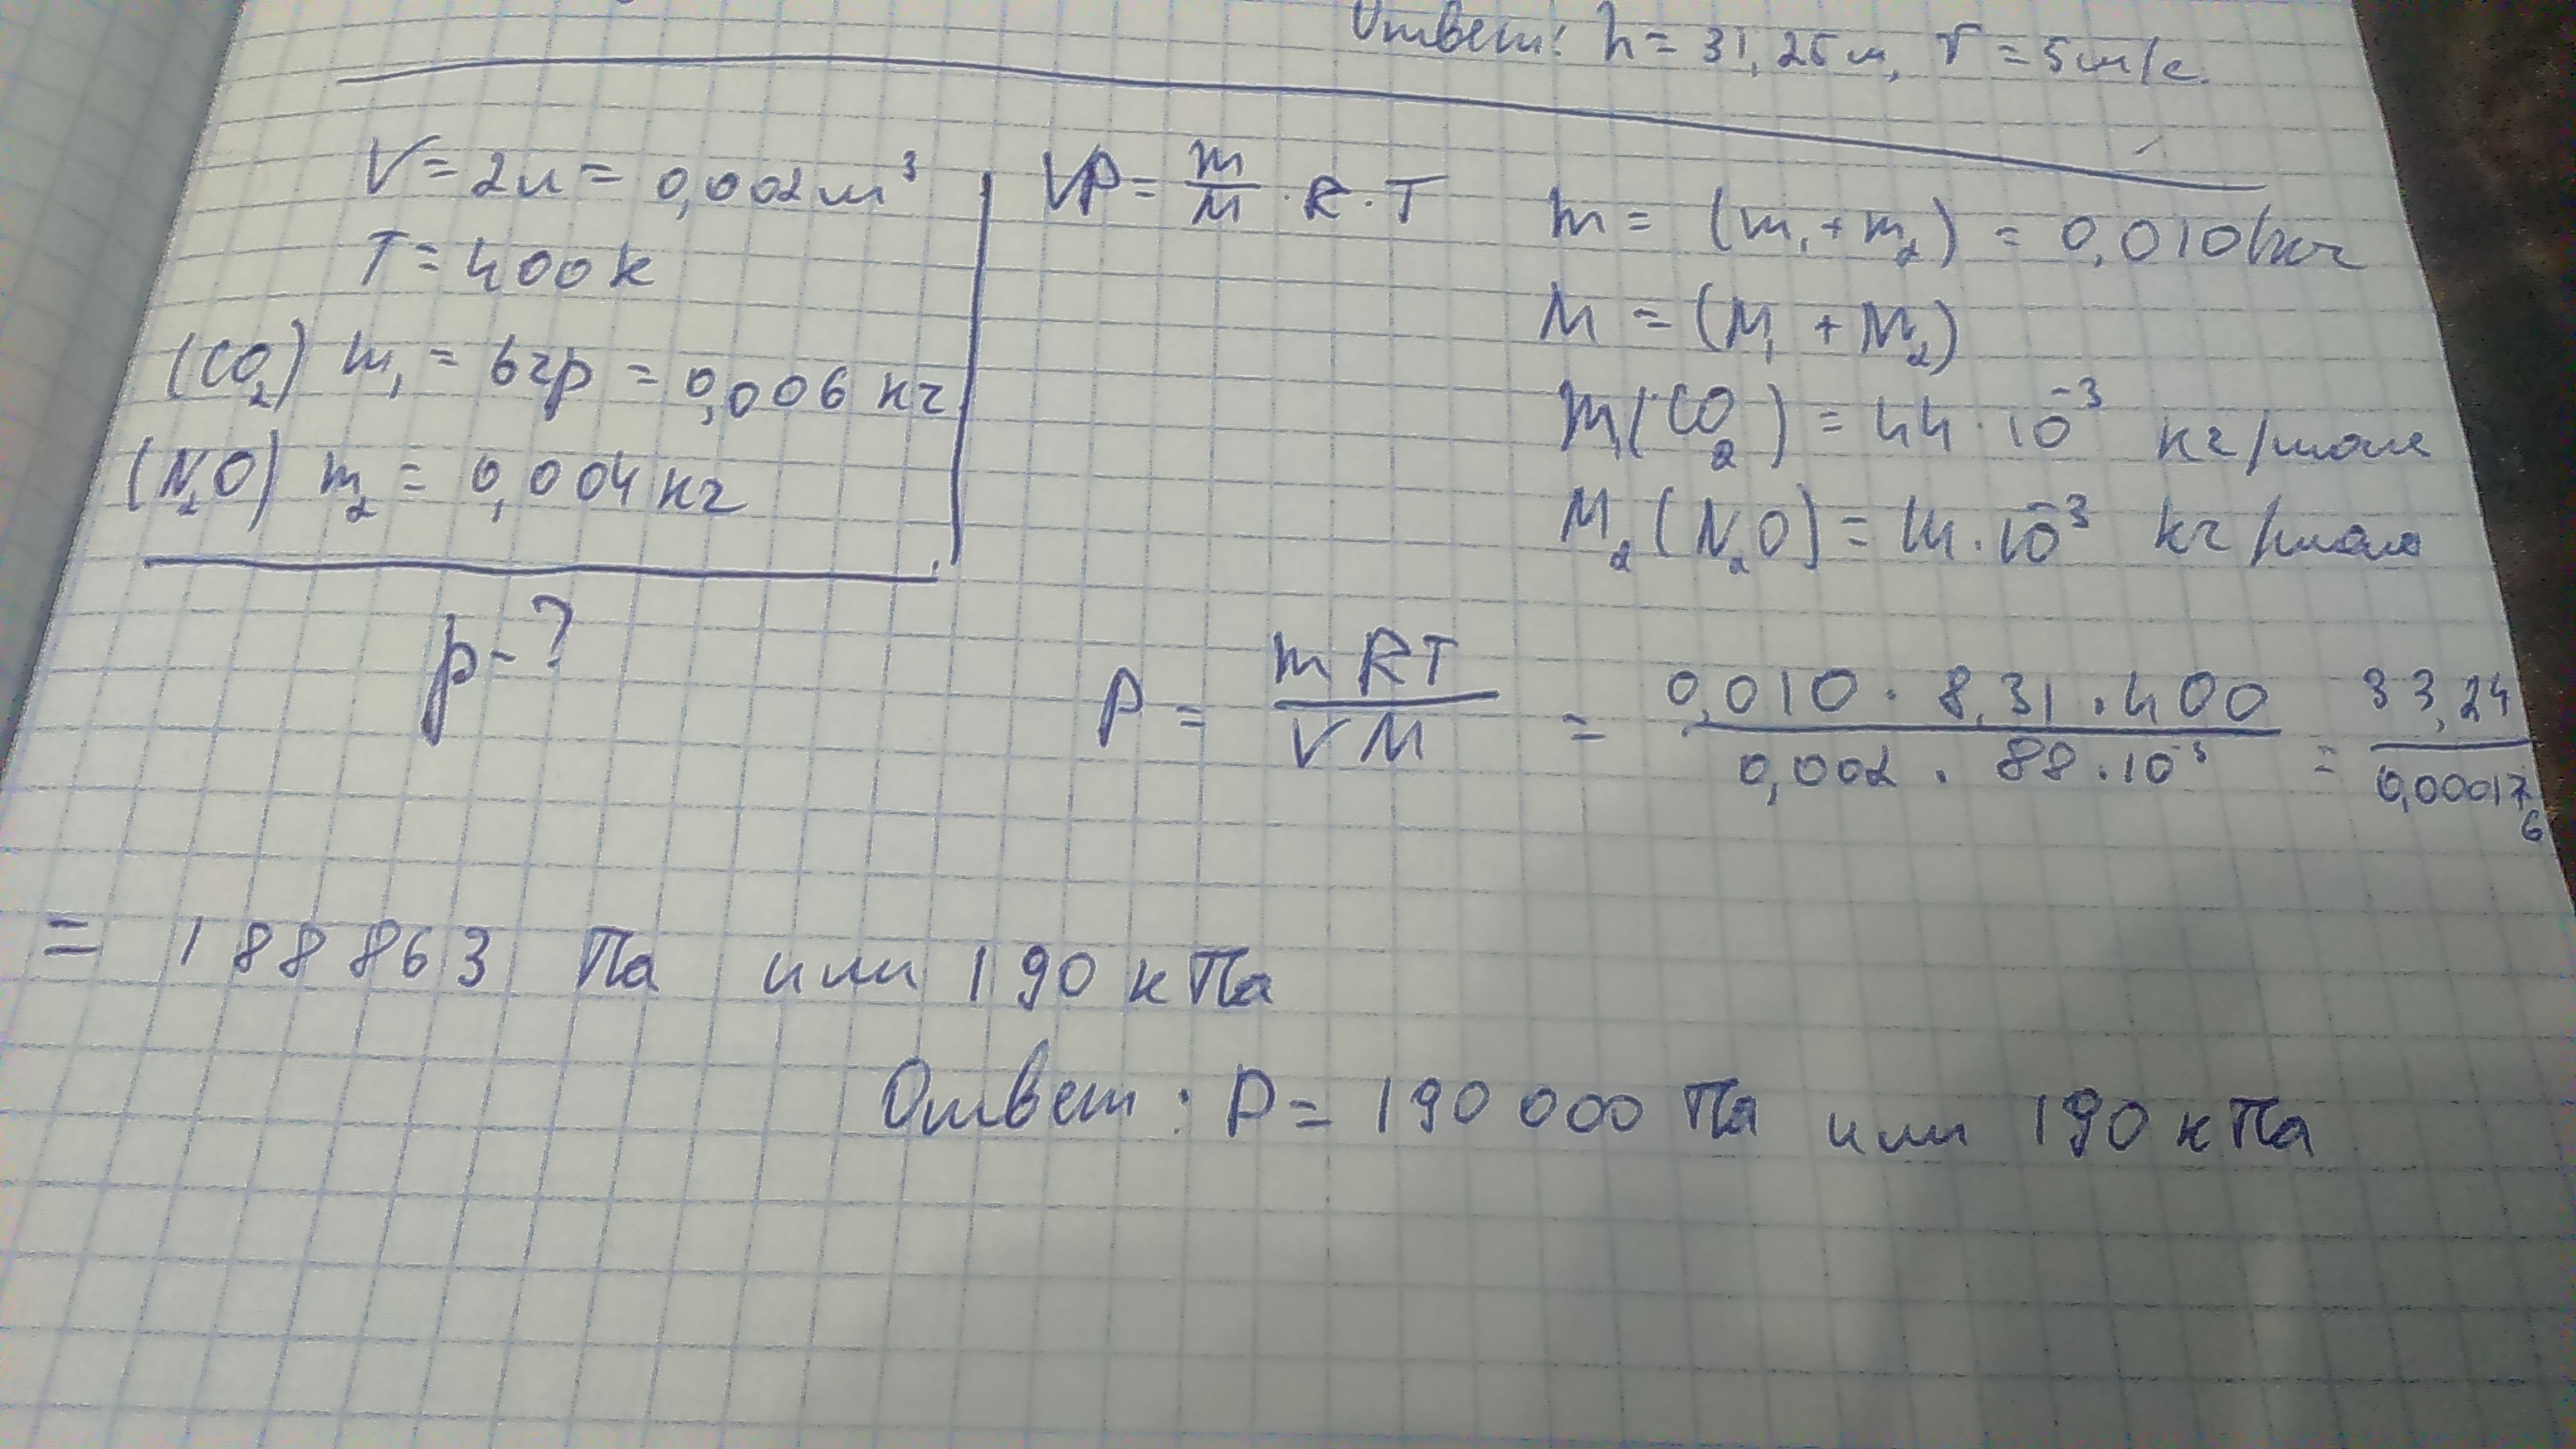 Ответ: h = 31,25 м, V = 5 м/с.
V = 2л = 0,002 м³
T = 400 k
(CO₂) m₁ = 6гр = 0,006 кг
(N₂O) m₂ = 0,004 кг
p - ?
VP = m/M · R · T
m = (m₁ + m₂) = 0,010 кг
M = (M₁ + M₂)
M₁(CO₂) = 44 · 10⁻³ кг/моль
M₂(N₂O) = 44 · 10⁻³ кг/моль
P = mRT/VM = 0,010 · 8,31 · 400/0,002 · 88 · 10⁻³ = 33,24/0,000176
= 188 863 Па или 190 кПа
Ответ: P = 190 000 Па или 190 кПа